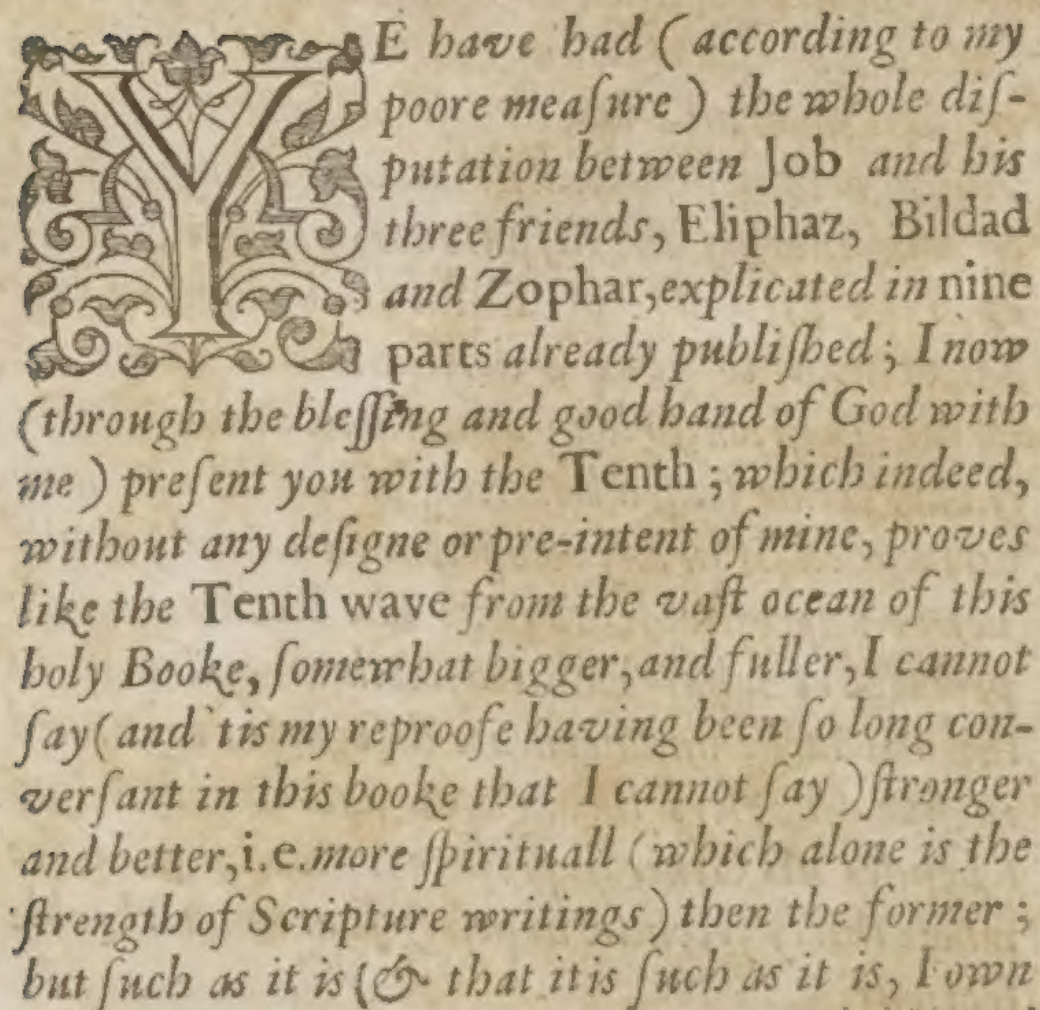 YE have had ( according to my
poore meaſure ) the whole diſ-
putation between Job and his
three friends, Eliphaz, Bildad
and Zophar, explicated in nine
parts already publiſhed ; I now
(through the bleſſing and good hand of God with
me ) preſent you with the Tenth ; which indeed,
without any deſigne or pre-intent of mine, proves
like the Tenth wave from the vaſt ocean of this
holy Booke, ſomewhat bigger, and fuller, I cannot
ſay ( and 'tis my reproofe having been ſo long con-
verſant in this booke that I cannot ſay ) ſtronger
and better, i.e. more ſpirituall ( which alone is the
ſtrength of Scripture writings ) then the former ;
but ſuch as it is (& that it is ſuch as it is, I own